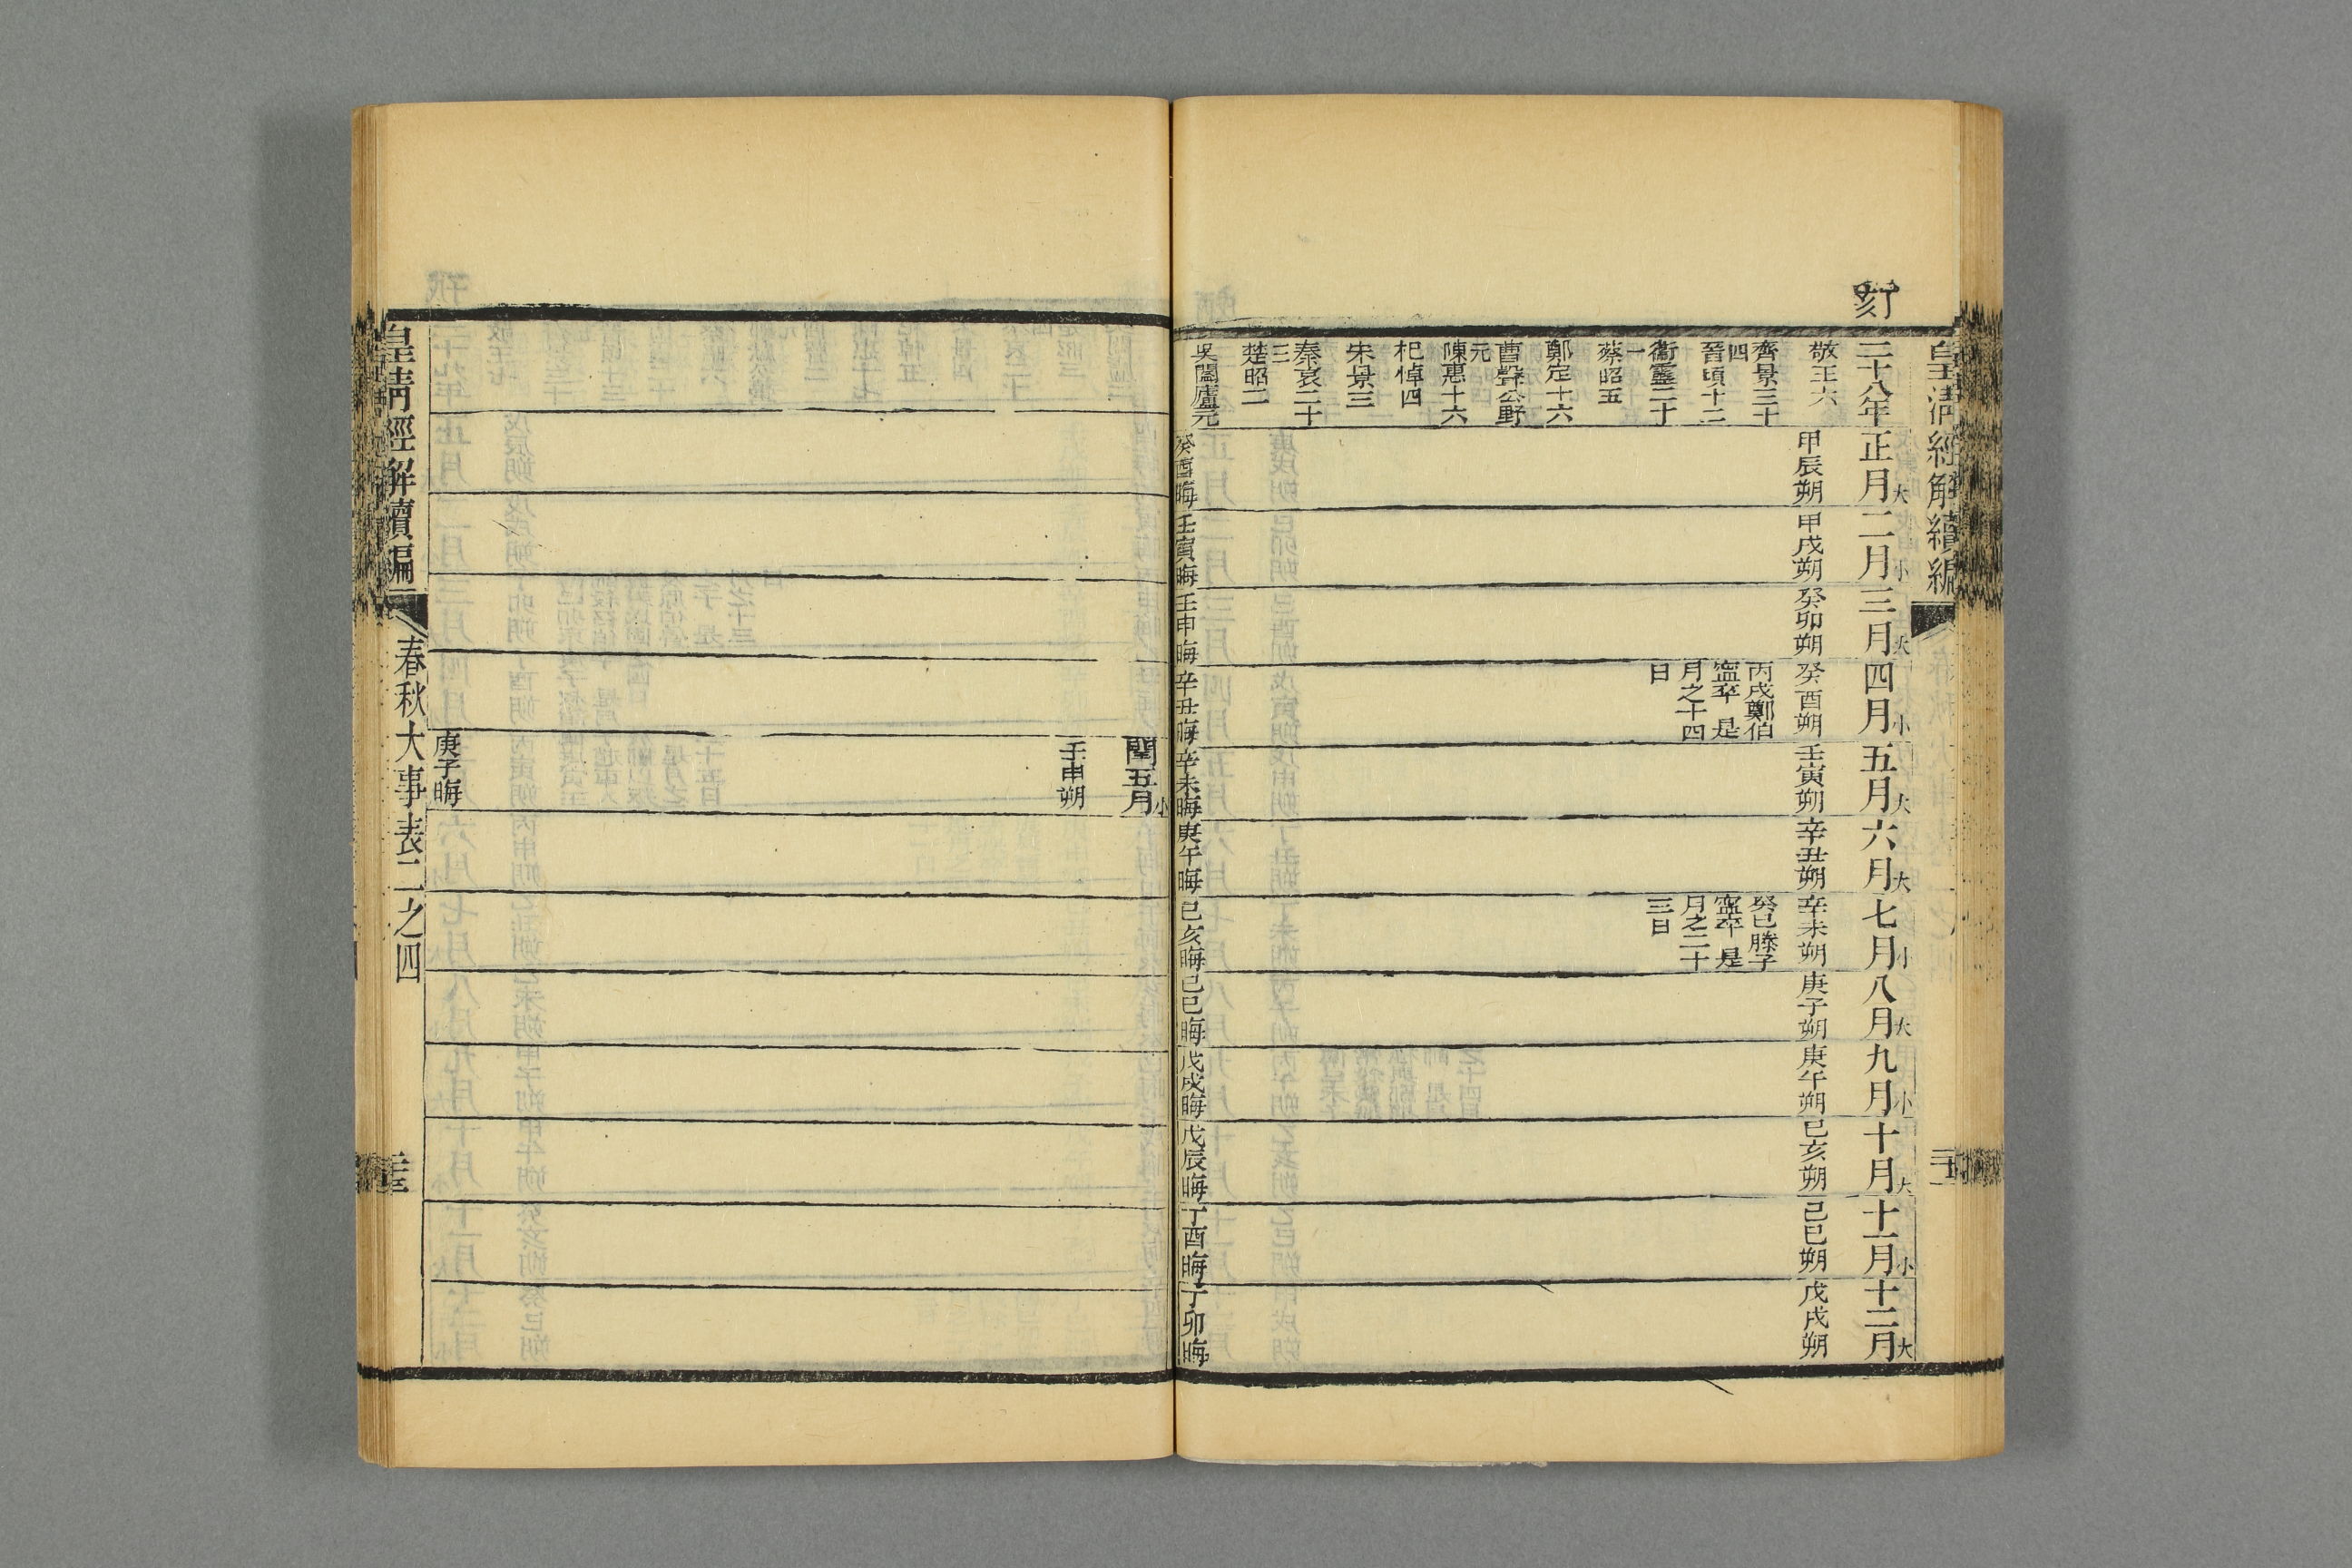 皇清經解續編
刻
二十八年
正月大
二月小
三月大
四月小
五月大
六月大
七月小
八月大
九月小
十月大
十一月小
十二月大
敬王六
甲辰朔
甲戌朔
癸卯朔
癸酉朔
壬寅朔
辛丑朔
辛未朔
庚子朔
庚午朔
己亥朔
己巳朔
戊戌朔
齊景三十
四
晉頃十二
衞靈二十
一
蔡昭五
鄭定十六
曹聲公野
元
陳惠十六
杞悼四
宋景三
秦哀二十
三
楚昭二
吳闔廬元
丙戌鄭伯
寧卒 是
月之十四
日
癸巳滕子
寧卒 是
月之二十
三日
癸酉晦
壬寅晦
壬申晦
辛丑晦
辛未晦
庚午晦
己亥晦
己巳晦
戊戌晦
戊辰晦
丁酉晦
丁卯晦
閏五月小
壬申朔
庚子晦
皇清經解續編
春秋大事表二之四